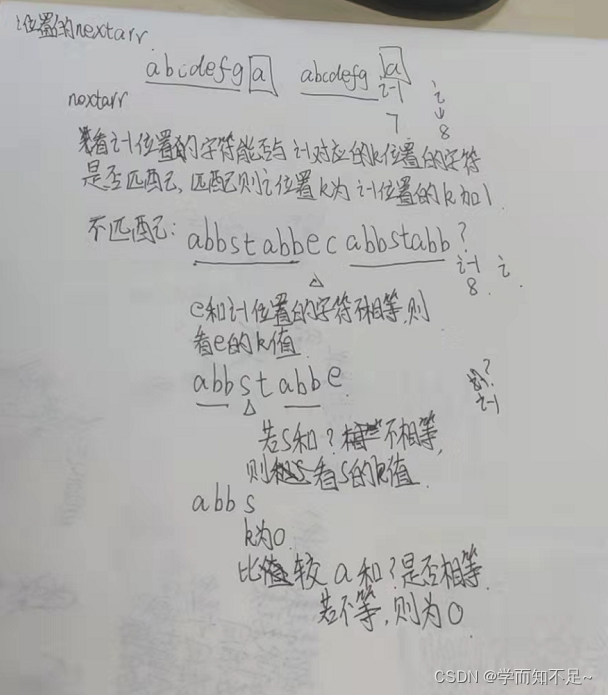 i位置的nextarr.
abcdefg a abcdefg a
i-1 i
nextarr 7 8
看i-1位置的字符能否与i-1对应的k位置的字符
是否匹配,匹配则i位置k为i-1位置的k加1.
不匹配: abbstabbec abbstabb ?
i-1 i
8
e和i-1位置的字符不相等,则
看e的k值
abbstabbe ?
i-1
若s和?不相等,
则看s的k值.
abbs
k为0.
比较a和?是否相等.
若不等,则为0.
CSDN @学而知不足~